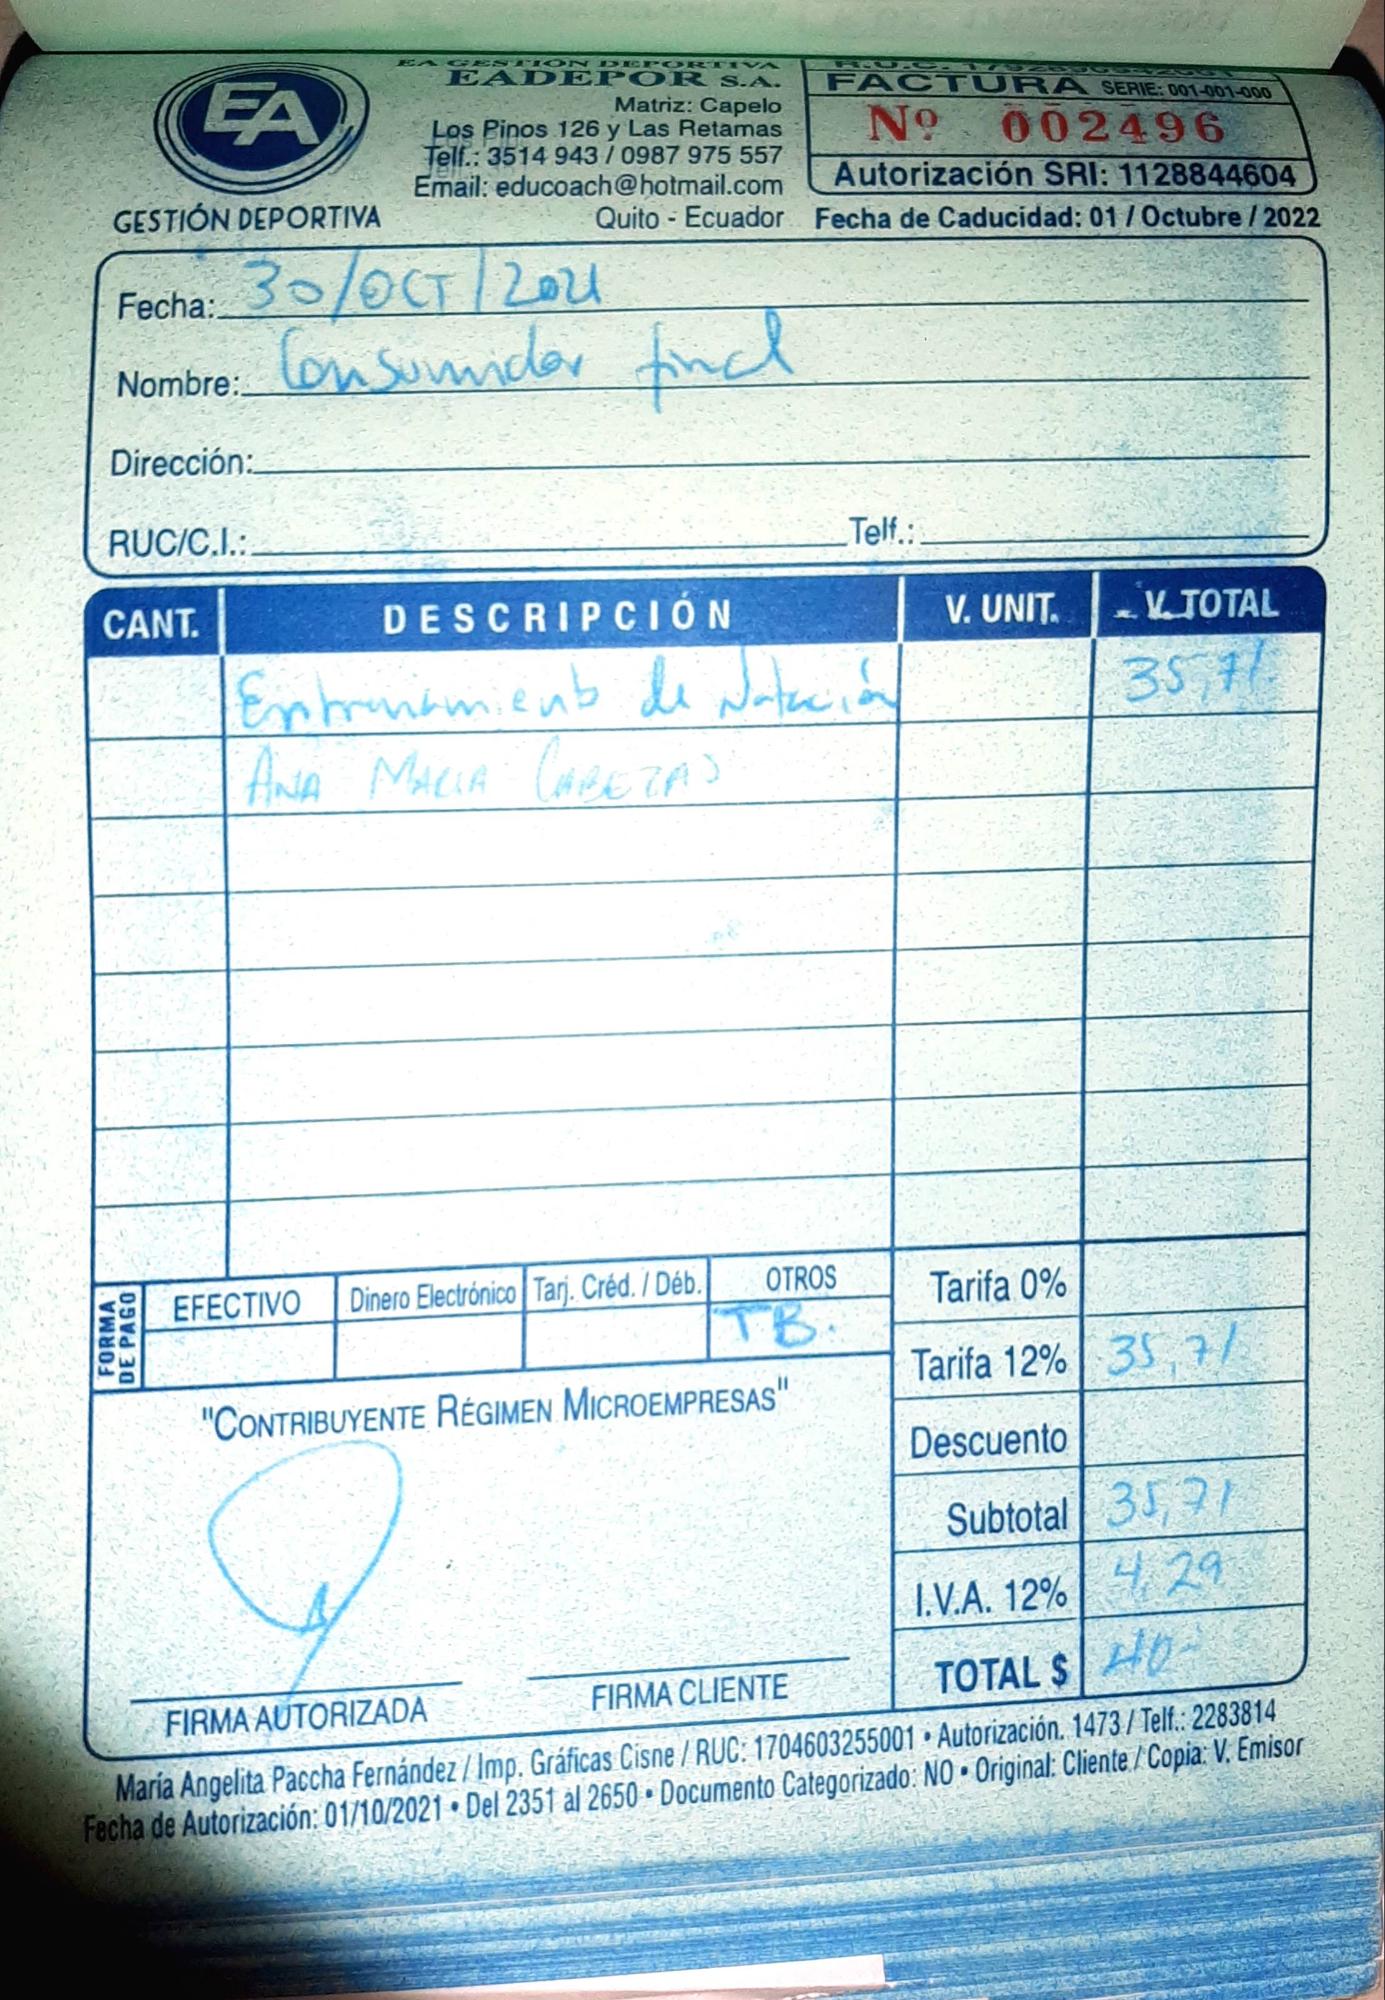 EA
GESTIÓN DEPORTIVA
EA GESTIÓN DEPORTIVA
EADEPOR S.A.
Matriz: Capelo
Los Pinos 126 y Las Retamas
Telf.: 3514 943 / 0987 975 557
Email: educoach@hotmail.com
Quito - Ecuador
R.U.C.
FACTURA SERIE: 001-001-000
Nº 002496
Autorización SRI: 1128844604
Fecha de Caducidad: 01 / Octubre / 2022
Fecha: 30/OCT/2021
Nombre: Consumidor final
Dirección:
RUC/C.I.: Telf.:
CANT. DESCRIPCIÓN V. UNIT. V. TOTAL
Entrenamiento de Natación 35,71
Ana Maria Cabezas
FORMA DE PAGO
EFECTIVO Dinero Electrónico Tarj. Créd. / Déb. OTROS
TB.
Tarifa 0%
Tarifa 12% 35,71
Descuento
Subtotal 35,71
I.V.A. 12% 4,29
TOTAL $ 40-
"CONTRIBUYENTE RÉGIMEN MICROEMPRESAS"
FIRMA AUTORIZADA FIRMA CLIENTE
María Angelita Paccha Fernández / Imp. Gráficas Cisne / RUC: 1704603255001 • Autorización. 1473 / Telf.: 2283814
Fecha de Autorización: 01/10/2021 • Del 2351 al 2650 • Documento Categorizado: NO • Original: Cliente / Copia: V. Emisor